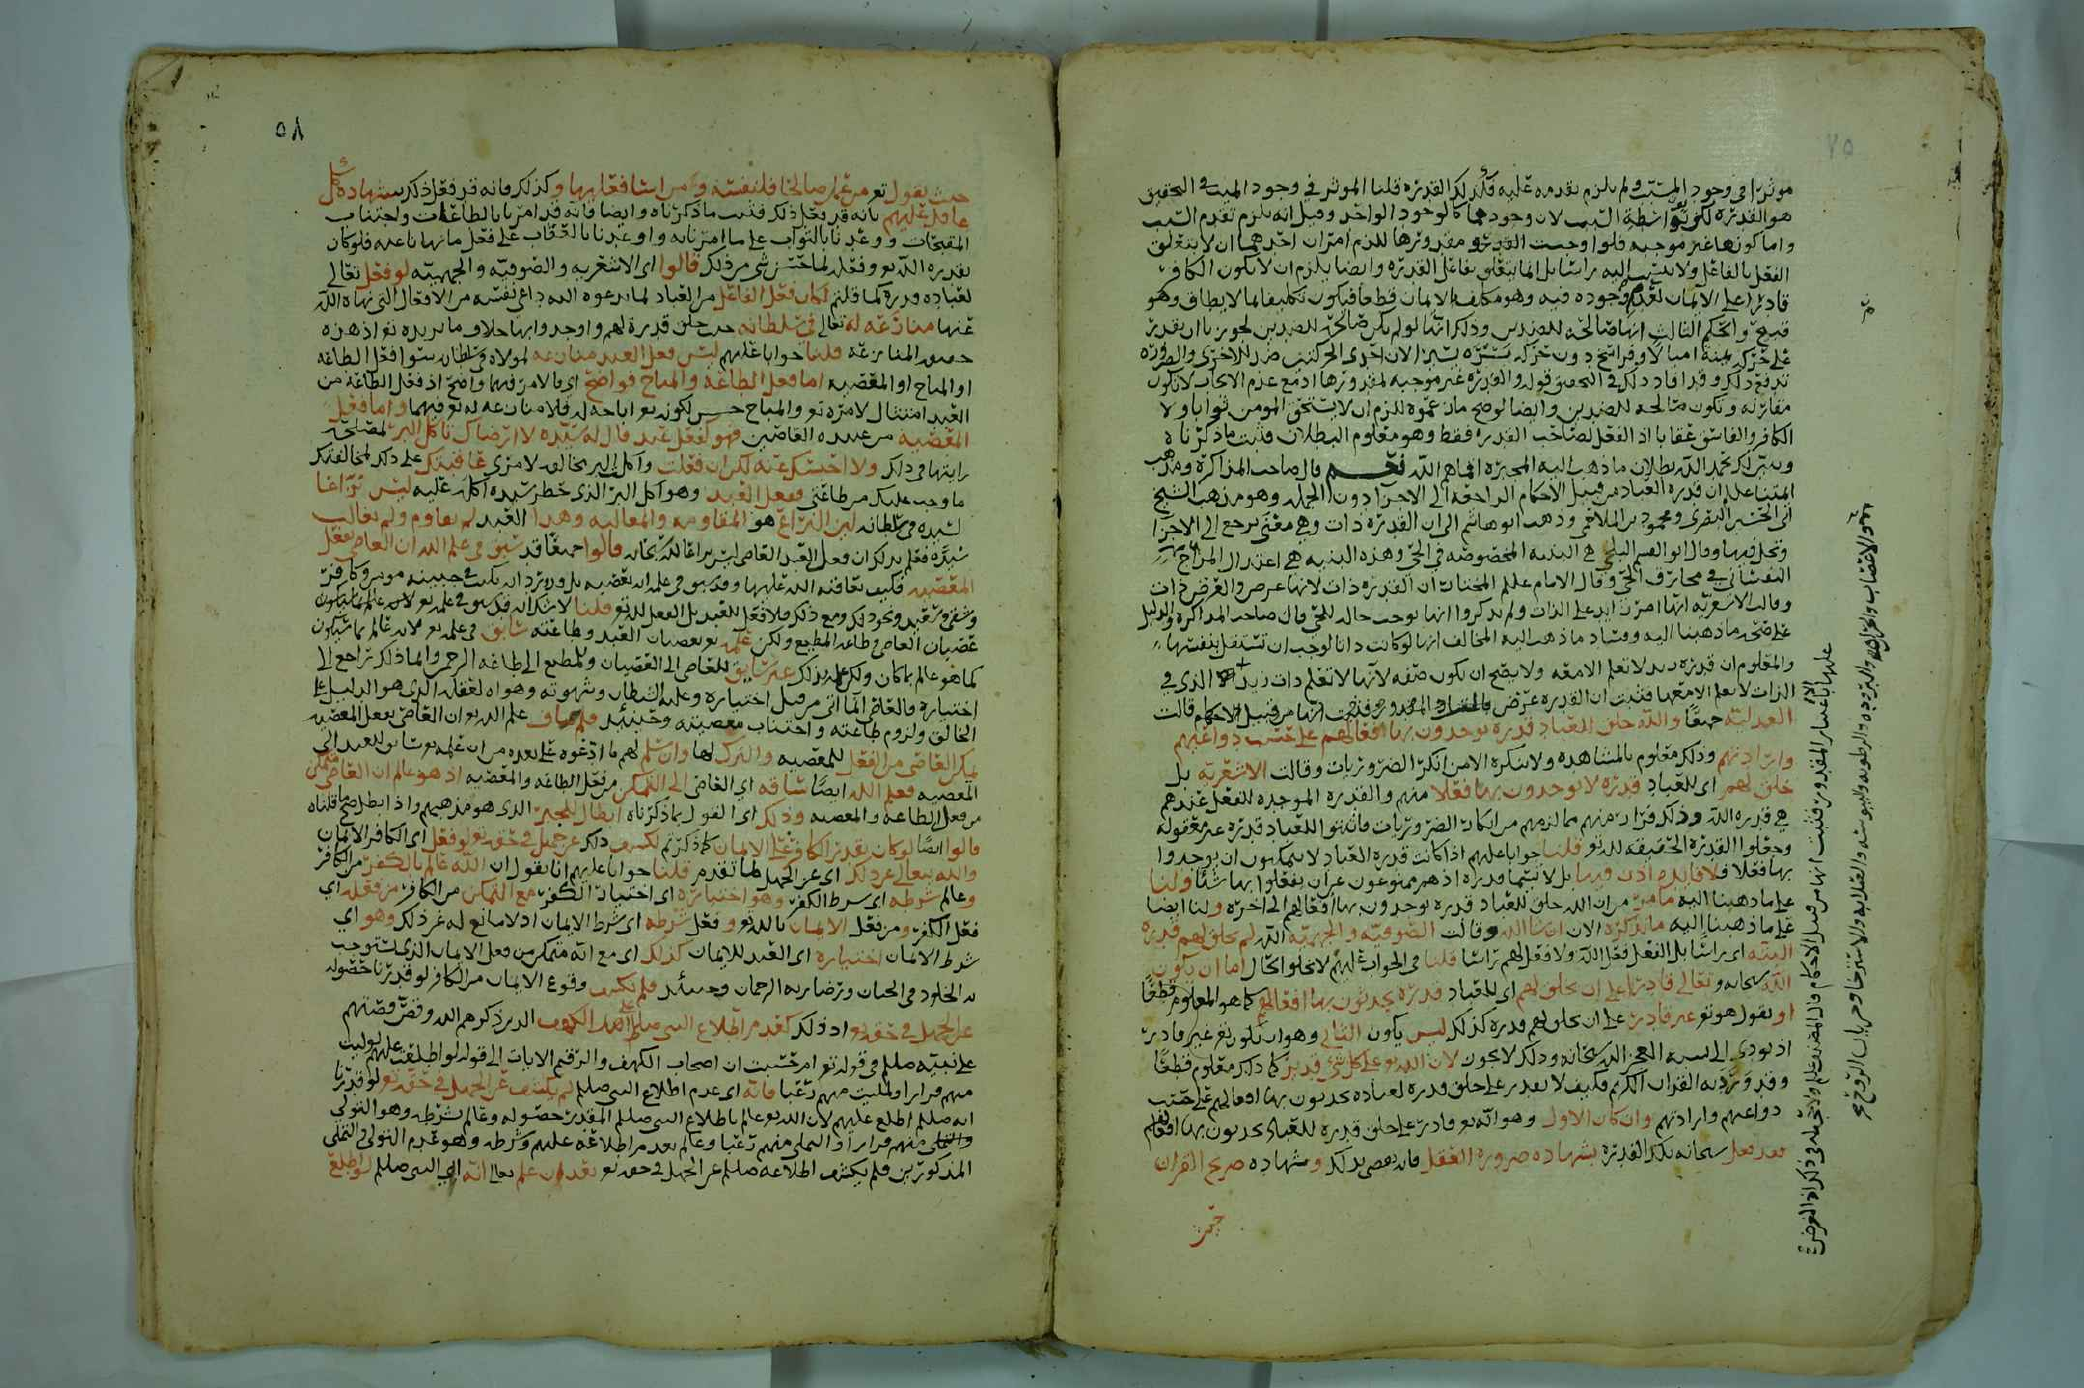 مؤثرا في وجود المسبب ولم يلزم تقدمه عليه فكذلك القدرة قلنا المؤثر في وجود المسبب في التحقيق
هو القدرة لكن بواسطة السبب لان وجودهما كالوجود الواحد وقيل انه يلزم تقدم السبب
واما كونها غير موجبه فلو اوجبت القدرة مقدورها للزم امران احدهما ان لا يتعلق
الفعل بالفاعل ولا ينسب اليه راسا بل انما يتعلق بفاعل القدرة وايضا يلزم ان لا يكون الكافر
قادرا على الايمان لعدم وجوده فيه وهو مكلف بالايمان قطعا فيكون تكليفا لما لا يطاق وهو
قبيح والحكم الثالث انها صالحة للضدين وذلك انها لو لم تكن صالحة للضدين لجوزنا ان يقدر
على حركة يمنة اميالا وفراسخ دون حركة يسرة شبرا لان احدى الحركتين ضد للاخرى والضرورة
تدفع ذلك وقد افاد ذلك في التحقيق قوله والقدرة غير موجبه لمقدورها اذ مع عدم الايجاب لا تكون
مقارنه وتكون صالحه للضدين وايضا لو صح ما زعموه للزم ان لا يستحق المومن ثوابا ولا
الكافر والفاسق عقابا اذ الفعل لصاحب القدره فقط وهو معلوم البطلان فثبت ما ذكرناه
وتبين لك بحمد الله بطلان ما ذهب اليه المجبرة اقماهم الله نعم قال صاحب المذاكرة ومذهب
ائمتنا عللم ان قدرة العباد من قبيل الاحكام الراجعه الى الاجزا دون الجمله وهو مذهب الشيخ
ابي الحسين البصري ومحمود بن الملاحمي وذهب ابو هاشم الى ان القدرة ذات وهي معنى يرجع الى الاجزا
وتحل فيها وقال ابو القسم البلخي هي البنيه المخصوصه في الحي وهذه البنيه هي اعتدال المزاج
النفساني في مجاري الحي وقال الامام عللم المختار ان القدره ذات لانها عرض والعرض ذات
وقالت الاشعريه انها امر زايد على الذات ولم يذكروا انها توجب حاله للحي قال صاحب المذاكره والدليل
على صحة ما ذهبنا اليه وفساد ما ذهب اليه المخالف انها لو كانت ذاتا لوجب ان تستقل بنفسها
والمعلوم ان قدرة زيد لا تعلم الا معه ولا يصح ان تكون صفه لانها لا تعلم ذات زيد الا الذي في
الذات لا تعلم الا معها فثبت ان القدره عرض
العدليه جميعا والله خلق للعباد قدرة يوجدون بها افعالهم على حسب دواعيهم
وارادتهم وذلك معلوم بالمشاهده ولا ينكره الا من انكر الضروريات وقالت الاشعرية بل
خلق لهم اي للعباد قدرة لا يوجدون بها فعلا منهم والقدره الموجده للفعل عندهم
هي قدره الله وذلك فرار منهم مما لزمهم من انكار الضروريات فاثبتوا للعباد قدرة غير معقوله
وجعلوا القدرة الحقيقه لله تع قلنا جوابا عليهم اذا كانت قدره العباد لا يتمكنون ان يوجدوا
بها فعلا فلا فايدة اذن فيها بل لا تسما قدرة اذ هم ممنوعون عن ان يفعلوا بها شيئا ولنا
على ما ذهبنا اليه ما مر من ان الله خلق للعباد قدره يوجدون بها افعالهم الى اخره ولنا ايضا
على ما ذهبنا اليه ما نذكره الان ان شا الله وقالت الصوفيه والجهمية الله لم يخلق لهم قدرة
البته اي راسا بل الفعل فعل الله ولا فعل لهم راسا قلنا في الجواب عليهم لا يخلو الحال اما ان يكون
الله سبحانه وتعالى قادرا على ان يخلق لهم اي للعباد قدرة يحدثون بها افعالهم كما هو المعلوم قطعا
او نقول هو تع غير قادر على ان يخلق لهم قدرة كذلك ليس يكون الثاني وهو ان يكون تع غير قادر
اذ يودي الى نسبة العجز الى الله سبحانه وذلك لا يجوز لان الله تع على كل شي قدير كما ذلك معلوم قطعا
وقد ورد به القران الكريم فكيف لا يقدر على خلق قدرة لعباده يحدثون بها افعالهم على حسب
دواعيهم وارادتهم وان كان الاول وهو انه تع قادر على خلق قدرة للعباد يحدثون بها افعالهم
فقد فعل سبحانه تلك القدرة بشهاده ضرورة العقل فانه يقضي بذلك وشهاده صريح القران
حيث
٥٨
حيث يقول تع من عمل صالحا فلنفسه ومن اسا فعليها وكذلك فانه قد فعل ذلك بشهادة كل
عاقل عليهم بانه قد فعل ذلك فثبت ما ذكرناه وايضا فانه قد امرنا بالطاعات واجتناب
المقبحات ووعدنا بالثواب على ما امرنا به واوعدنا بالعقاب على فعل ما نهانا عنه فلو كان
بقدرة الله تع وفعله لما حسن شي من ذلك قالوا اي الاشعريه والصوفيه والجهميه لو فعل تعالى
لعباده قدرة كما قلتم لكان فعل الفاعل من العباد لما يدعوه اليه داعي نفسه من الافعال التي نهاه الله
عنها منازعه له تعالى في سلطانه حيث خلق قدرة لهم واوجدوا بها خلاف ما يريده تع اذ هذه
حقيقة المنازعه قلنا جوابا عليهم ليس فعل العبد منازعه لمولاه في سلطانه سوا فعل الطاعه
او المباح او المعصيه اما فعل الطاعه والمباح فواضح اي فالامر فيهما واضح اذ فعل الطاعه من
العبد امتثال لامره تع والمباح حسن لكونه تع اباحه له فلا منازعه له تع فيهما واما فعل
المعصيه من عبيده العاصين فهو كفعل عبد قال له سيده لا ارضاك تاكل البر لمصلحة
رايتها في ذلك ولا احبسك عنه لكن ان فعلت واكلت البر بخالفه لامري عاقبتك على ذلك لمخالفتك
ما وجب عليك من طاعتي ففعل العبد وهو اكل البر الذي حظر سيده اكله عليه ليس نزاعا
لسيده في سلطانه لان النزاع هو المقاومه والمغالبه وهذا العبد لم يقاوم ولم يغالب
سيده فعلم بذلك ان فعل العبد العاصي ليس نزاعا لله سبحانه قالوا جميعا قد سبق في علم الله ان العاصي يفعل
المعصيه فكيف يعاقبه الله عليها وقد سبق في علمه انه يعصيه بل ورد انه يكتب في جبينه مومن وكافر
وشقي وسعيد ونحو ذلك ومع ذلك فلا فعل للعبد بل الفعل لله تع قلنا لا شك انه قد سبق في علمه تع لانه عالم بما سيكون
عصيان العاصي وطاعه المطيع ولكن علمه تع بعصيان العبد وطاعته سابق في علمه تع لانه عالم بما سيكون
كما هو عالم بما كان ولكن علمه بذلك غير سابق للعاصي الى العصيان وللمطيع الى طاعة الرحمن وانما ذلك راجع الى
اختياره فالعاصي انما اتي من قبل اختياره وغلبه الشيطان وشهوته وهواه لعقله الذي هو الدليل على
الخالق ولزوم طاعته واجتناب معصيته وحينئذ فلم يناف علم الله تع ان العاصي يفعل المعصيه
تمكن العاصي من الفعل للمعصيه والترك لها وان سلم لهم ما ادعوه على بعده من ان علمه تع سابق للعبد الى
المعصيه فعلم الله ايضا ساقه اي العاصي الى التمكن من فعل الطاعه والمعصيه اذ هو عالم ان العاصي متمكن
من فعل الطاعة والمعصيه وذلك اي القول بما ذكرناه ابطال للجبر الذي هو مذهبهم واذا بطل صح ما قلناه
قالوا ايضا لو كان يقدر الكافر على الايمان كما ذكرتم لكشف ذلك عن جهل في حقه تع لو فعل اي الكافر الايمان
والله يتعالى عن ذلك اي عن الجهل لما تقدم قلنا جوابا عليهم انا نقول ان الله عالم بالكفر من الكافر
وعالم شرطه اي شرط الكفر وهو اختياره اي اختيار الكفر مع التمكن من الكافر من فعله اي
فعل الكفر ومن فعل الايمان بالله تع وفعل شرطه اي شرط الايمان اذ لا مانع له عن ذلك وهو اي
شرط الايمان اختياره اي العبد للايمان كذلك اي مع انه متمكن من فعل الايمان الذي يستوجب
به الخلود في الجنان ورضا ربه الرحمن وحينئذ فلم يكشف وقوع الايمان من الكافر لو قدرنا حصوله
عن الجهل في حقه تع اذ ذلك كعدم اطلاع النبي صللم على اهل الكهف الذين ذكرهم الله وقص قصتهم
على نبيه صللم في قوله تع ام حسبت ان اصحاب الكهف والرقيم الايات الى قوله لو اطلعت عليهم لوليت
منهم فرارا ولملئت منهم رعبا فانه اي عدم اطلاع النبي صللم لم يكشف عن الجهل في حقه تع لو قدرنا
انه صللم اطلع عليهم لان الله تع عالم باطلاع النبي صللم المقدر حصوله وعالم شرطه وهو التولي
منهم فرارا والتملي منهم رعبا وعالم بعدم اطلاعه عليهم وشرطه وهو عدم التولي والتملي
المذكورين فلم يكشف اطلاعه صللم عن الجهل في حقه تع فقد علم تعالى انه اي النبي صللم لو اطلع